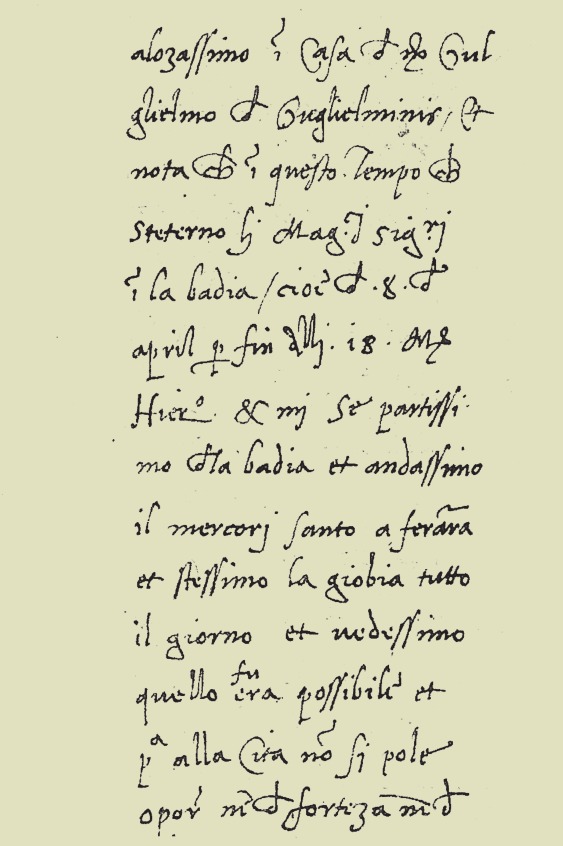 alozassimo ĩ Casa d Gul
glielmo d Guglielminis / Et
nota ch ĩ questo Tempo ch
steterno li Mag.ci sig.ri
ĩ la badia / cioè d .8. d
april p fin dlli . 18 . Mr
Hier.o & mi Se partissi
mo dla badia et andassimo
il mercorj santo a ferãra
et stessimo la giobia tutto
il giorno et uedessimo
quello fu era possibile et
p.a alla Cita nõ si pole
opor d forteza d